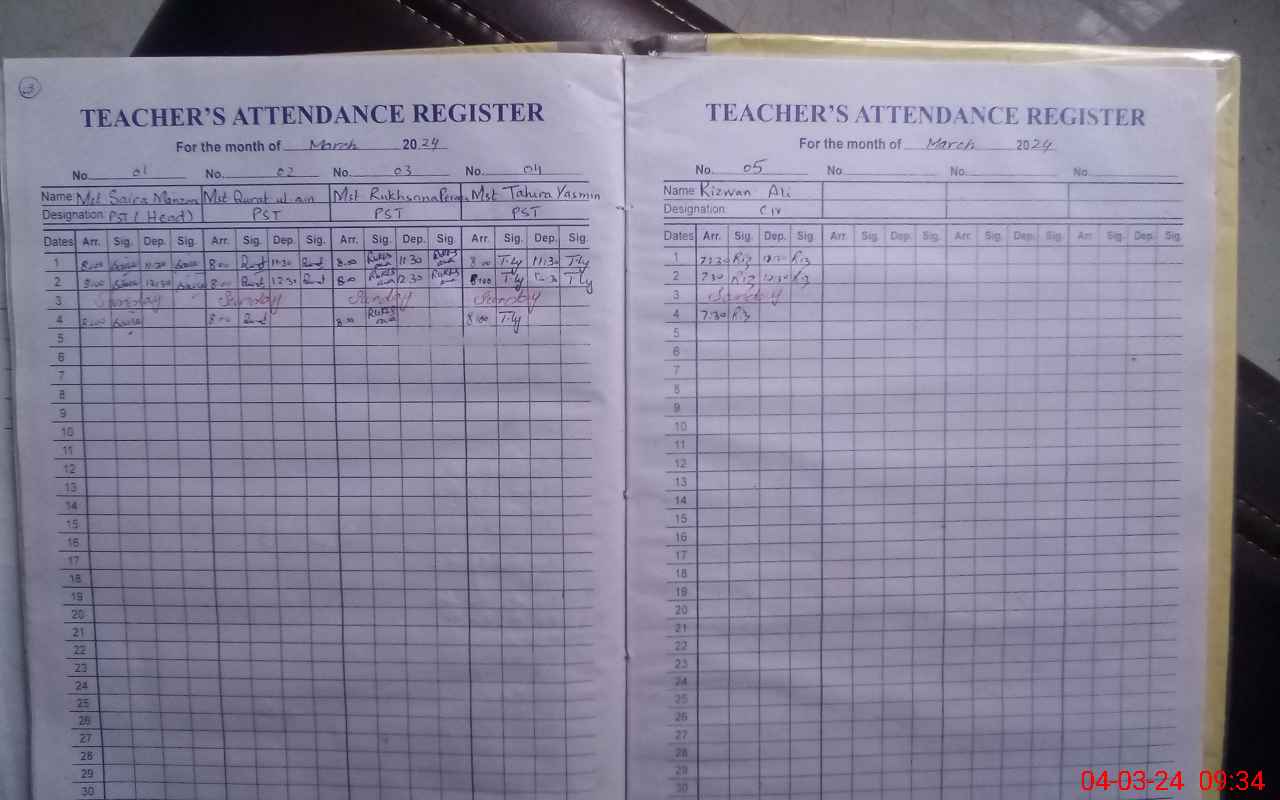 3
TEACHER'S ATTENDANCE REGISTER
For the month of March 2024
No. 01 No. 02 No. 03 No. 04
Name Mst Saira Manzoor Mst Qurat ul ain Mst Rukhsana Mst Tahira Yasmin
Designation PST (Head) PST PST PST
Dates Arr. Sig. Dep. Sig. Arr. Sig. Dep. Sig. Arr. Sig. Dep. Sig. Arr. Sig. Dep. Sig.
1 8:00 11:30 8:00 11:30 8:00 11:30 8:00 T-ly 11:30 T-ly
2 8:00 12:30 8:00 12:30 8:00 12:30 8:00 T-ly 12:30 T-ly
3 Sunday Sunday Sunday Sunday
4 8:00 8:00 8:00 8:00 T-ly
5
6
7
8
9
10
11
12
13
14
15
16
17
18
19
20
21
22
23
24
25
26
27
28
29
30
TEACHER'S ATTENDANCE REGISTER
For the month of March 2024
No. 05 No. No. No.
Name Rizwan Ali
Designation
Dates Arr. Sig. Dep. Sig. Arr. Sig. Dep. Sig. Arr. Sig. Dep. Sig. Arr. Sig. Dep. Sig.
1 7:30 Riz Riz
2 7:30 Riz 12:30 Riz
3 Sunday
4 7:30 Riz
5
6
7
8
9
10
11
12
13
14
15
16
17
18
19
20
21
22
23
24
25
26
27
28
29
30
04-03-24 09:34